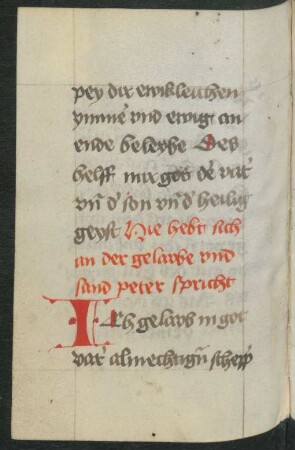 pey dir ewikleichen
ymmer vnd ewig an
ende beleybe Des
helff mir got der vater
vnd der son vnd der heilig
geyst Hie hebt sich
an der gelaube vnd
sand peter spricht
Ich gelaub in got
vater almechtign schepp